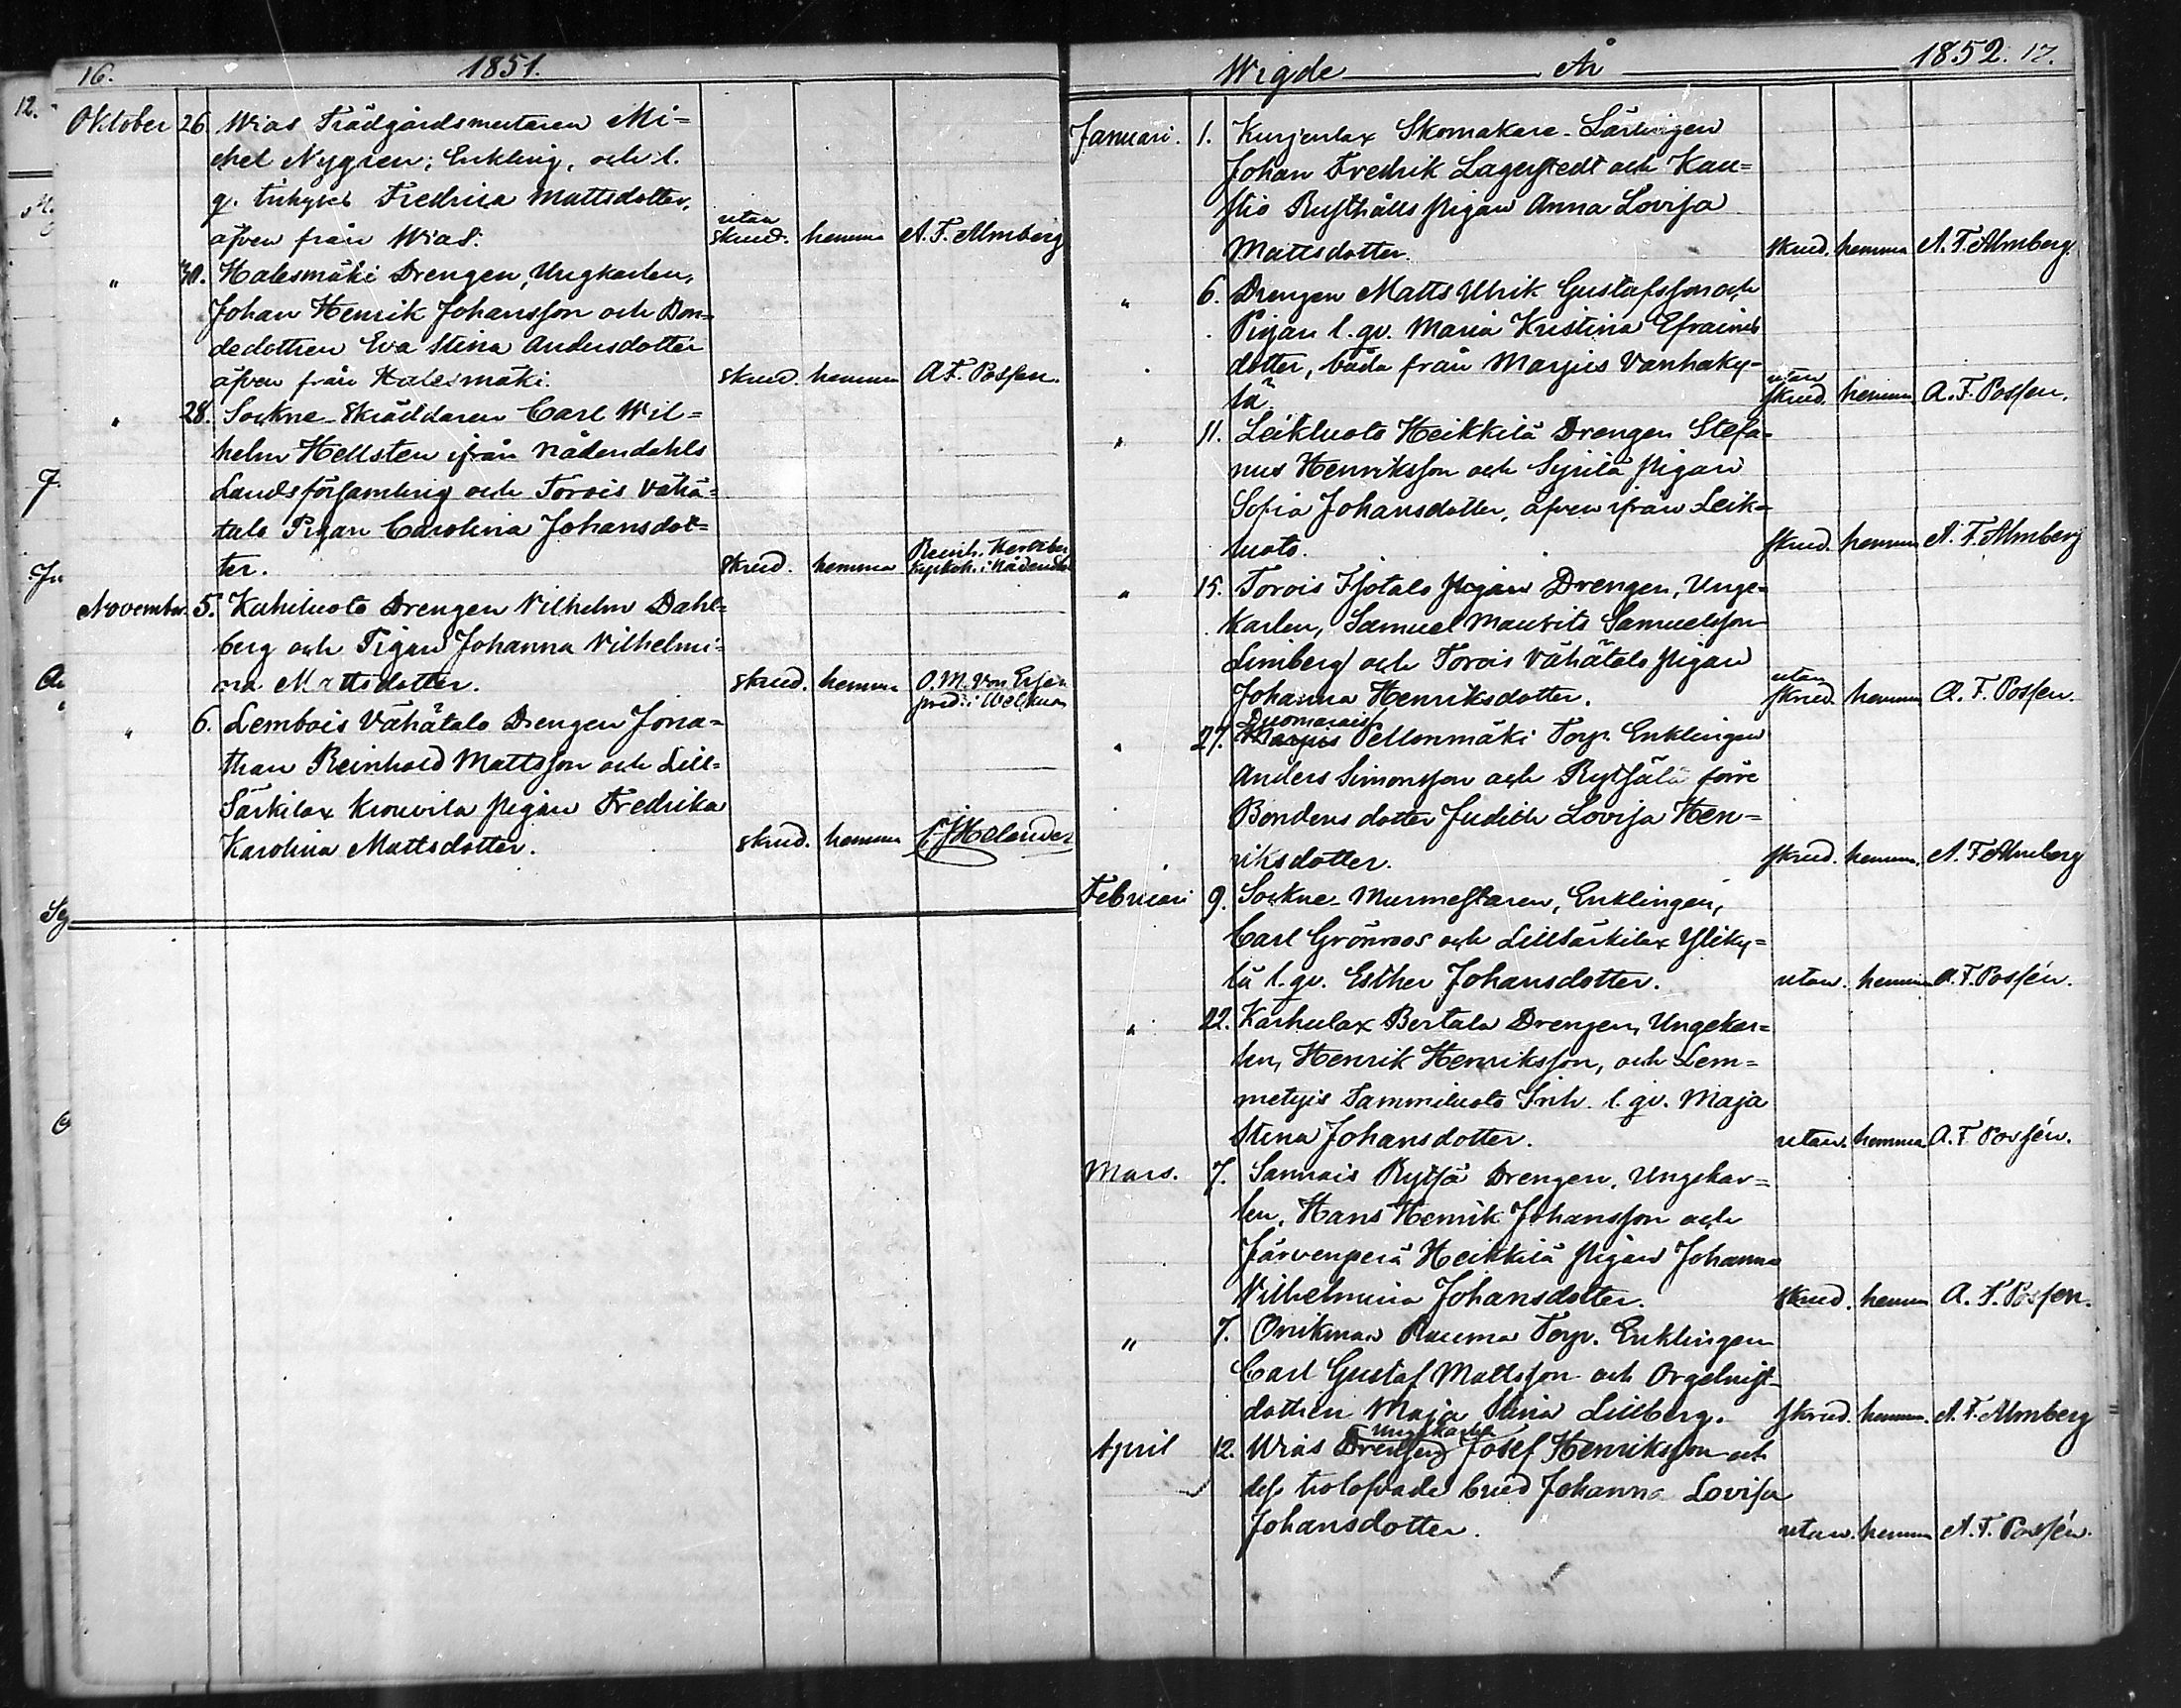 16. 1851.
Oktober 26. Wias Trädgårdsmästaren Mi=
chel Nygren, Enkling, och l.
q. Fredrica Mattsdotter,
äfven från Wias. utan skrud. hemma A. F. Almberg
" 30. Halesmäki Drengen, Ungkarlen,
Johan Henrik Johansson och Bon=
dedottren Eva Stina Andersdotter
äfven från Halesmäki. skrud. hemma A F. Possen.
" 28. Sockne Skräddaren Carl Wil=
helm Hellsten ifrån Nådendahls
Landsförsamling och Torois Vähä=
talo Pigan Carolina Johansdot=
ter. skrud. hemma Reinh. kyrkoh. i
November 5. Kahiluoto Drengen Vilhelm Dahl=
berg och Pigan Johanna Vilhelmi=
na Mattsdotter. skrud. hemma O. M. Von Essen
" 6. Lembois Vähätalo Drengen Jona=
than Reinhold Mattsson och Lill=
Särkilax Krouvila pigan Fredrika
Karolina Mattsdotter. skrud. hemma Helander
Wigde År 1852. 17.
Januari. 1. Kurjenlax Skomakare-Lärlingen
Johan Fredrik Lagerstedt och Kau=
stio Rusthålls pigan Anna Lovisa
Mattsdotter. skrud. hemma A. F. Almberg.
" 6. Drengen Matts Ulrik Gustafsson och
Pigan l. qv. Maria Kristina Efraims
dotter, båda från Marjus Vanhaky=
lä. utan skrud. hemma A. F. Possen.
" 11. Leikluoto Heikkilä Drengen Stefa=
nus Henriksson och Syrilä pigan
Sofia Johansdotter, äfven ifrån Leik=
luoto. skrud. hemma A. F. Almberg
" 15. Torois Isotalo pigan Drengen, Unge=
karlen, Samuel Maurits Samuelsson
Limberg och Torois Vähätalo pigan
Johanna Henriksdotter. utan skrud. hemma A. F. Possen.
" 27. Pellonmäki Torp. Enklingen
Anders Simonsson och Rytsälä förre
Bondens dotter Judith Lovisa Hen=
riksdotter. skrud. hemma. A. F Almberg
Februari 9. Sockne Murmestaren, Enklingen,
Carl Grönroos och Lillsärkilax Yliky=
lä l. qv. Esther Johansdotter. utan. hemma A. F. Possén.
" 22. Karhulax Bertala Drengen, Ungekar=
len, Henrik Henriksson, och Lem=
metyis Tammiluoto Inh. l. qv. Maja
Stina Johansdotter. utan. hemma A. F. Possén.
Mars. 7. Sannais Rytsä Drengen, Ungekar=
len, Hans Henrik Johansson och
Järvenpää Heikkilä pigan Johanna
Vilhelmina Johansdotter. skrud. hemma A. F. Possen.
" 7. Onikmaa Rauma Torp. Enklingen
Carl Gustaf Mattsson och Orgelnist
dottren Maja Stina Lillberg. skrud. hemma. A. F. Almberg
April 12. Wias Drengen Ungekarlen Josef Henriksson och
dess trolofvade brud Johanna Lovisa
Johansdotter. utan. hemma A. F. Possén.